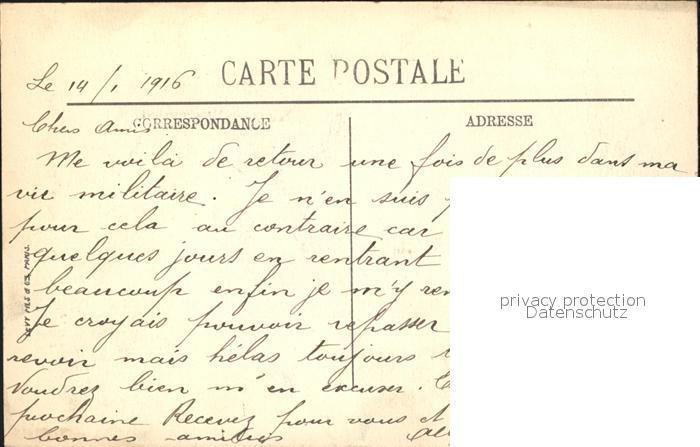 Le 14/1 1916
CARTE POSTALE
CORRESPONDANCE
ADRESSE
Chers Amis
Me voilà de retour une fois de plus dans ma
vie militaire. Je n'en suis
pour cela au contraire car
quelques jours en rentrant
beaucoup enfin je m'y
Je croyais pouvoir repasser
revoir mais hélas toujours
Voudrez bien m'en excuser.
prochaine Recevez pour vous et
bonnes amitiés
LEVY FILS & Cie, PARIS.
privacy protection
Datenschutz